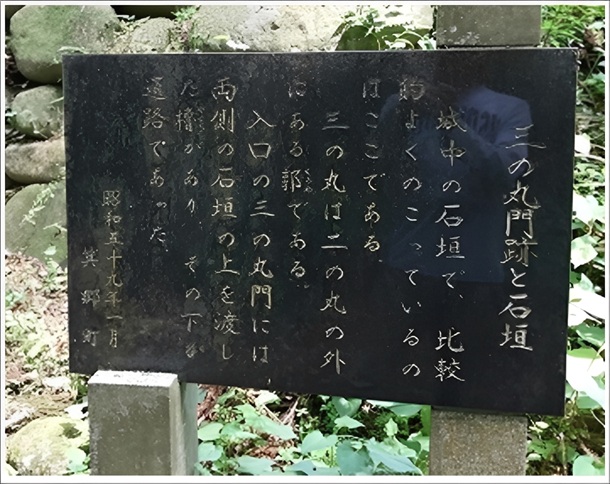 三の丸門跡と石垣
城中の石垣で、比較
的よくのこっているの
はここである。
三の丸は二の丸の外
にある郭である。
入口の三の丸門には、
両側の石垣の上を渡し
た櫓があり、その下が
道路であった。
昭和五十九年一月
箕郷町